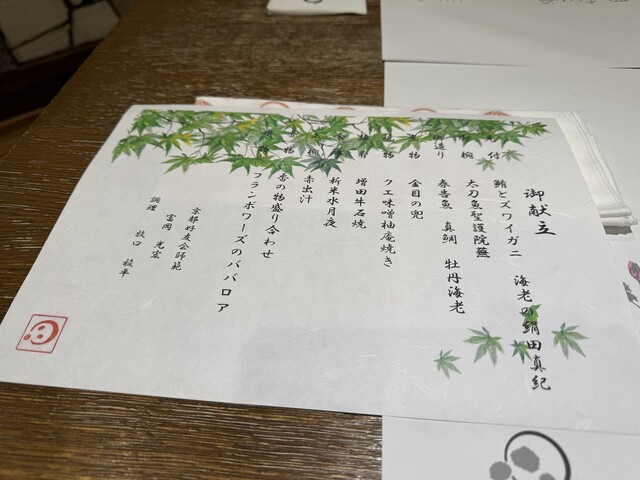 御献立
付 鮪とズワイガニ 海老の絹田真紀
椀 太刀魚聖護院蕪
造り 春告魚 真鯛 牡丹海老
物 金目の兜
物 クエ味噌柚庵焼き
増田牛石焼
新米水月夜
椀 赤出汁
物 香の物盛り合わせ
フランボワーズのババロア
京都好友会師範
富岡 光宏
調理 牧口 稜平